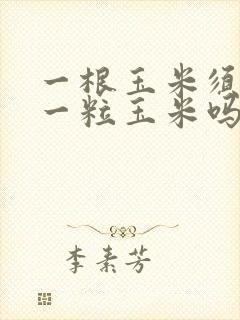 一根玉米须
一粒玉米吗
李素芳